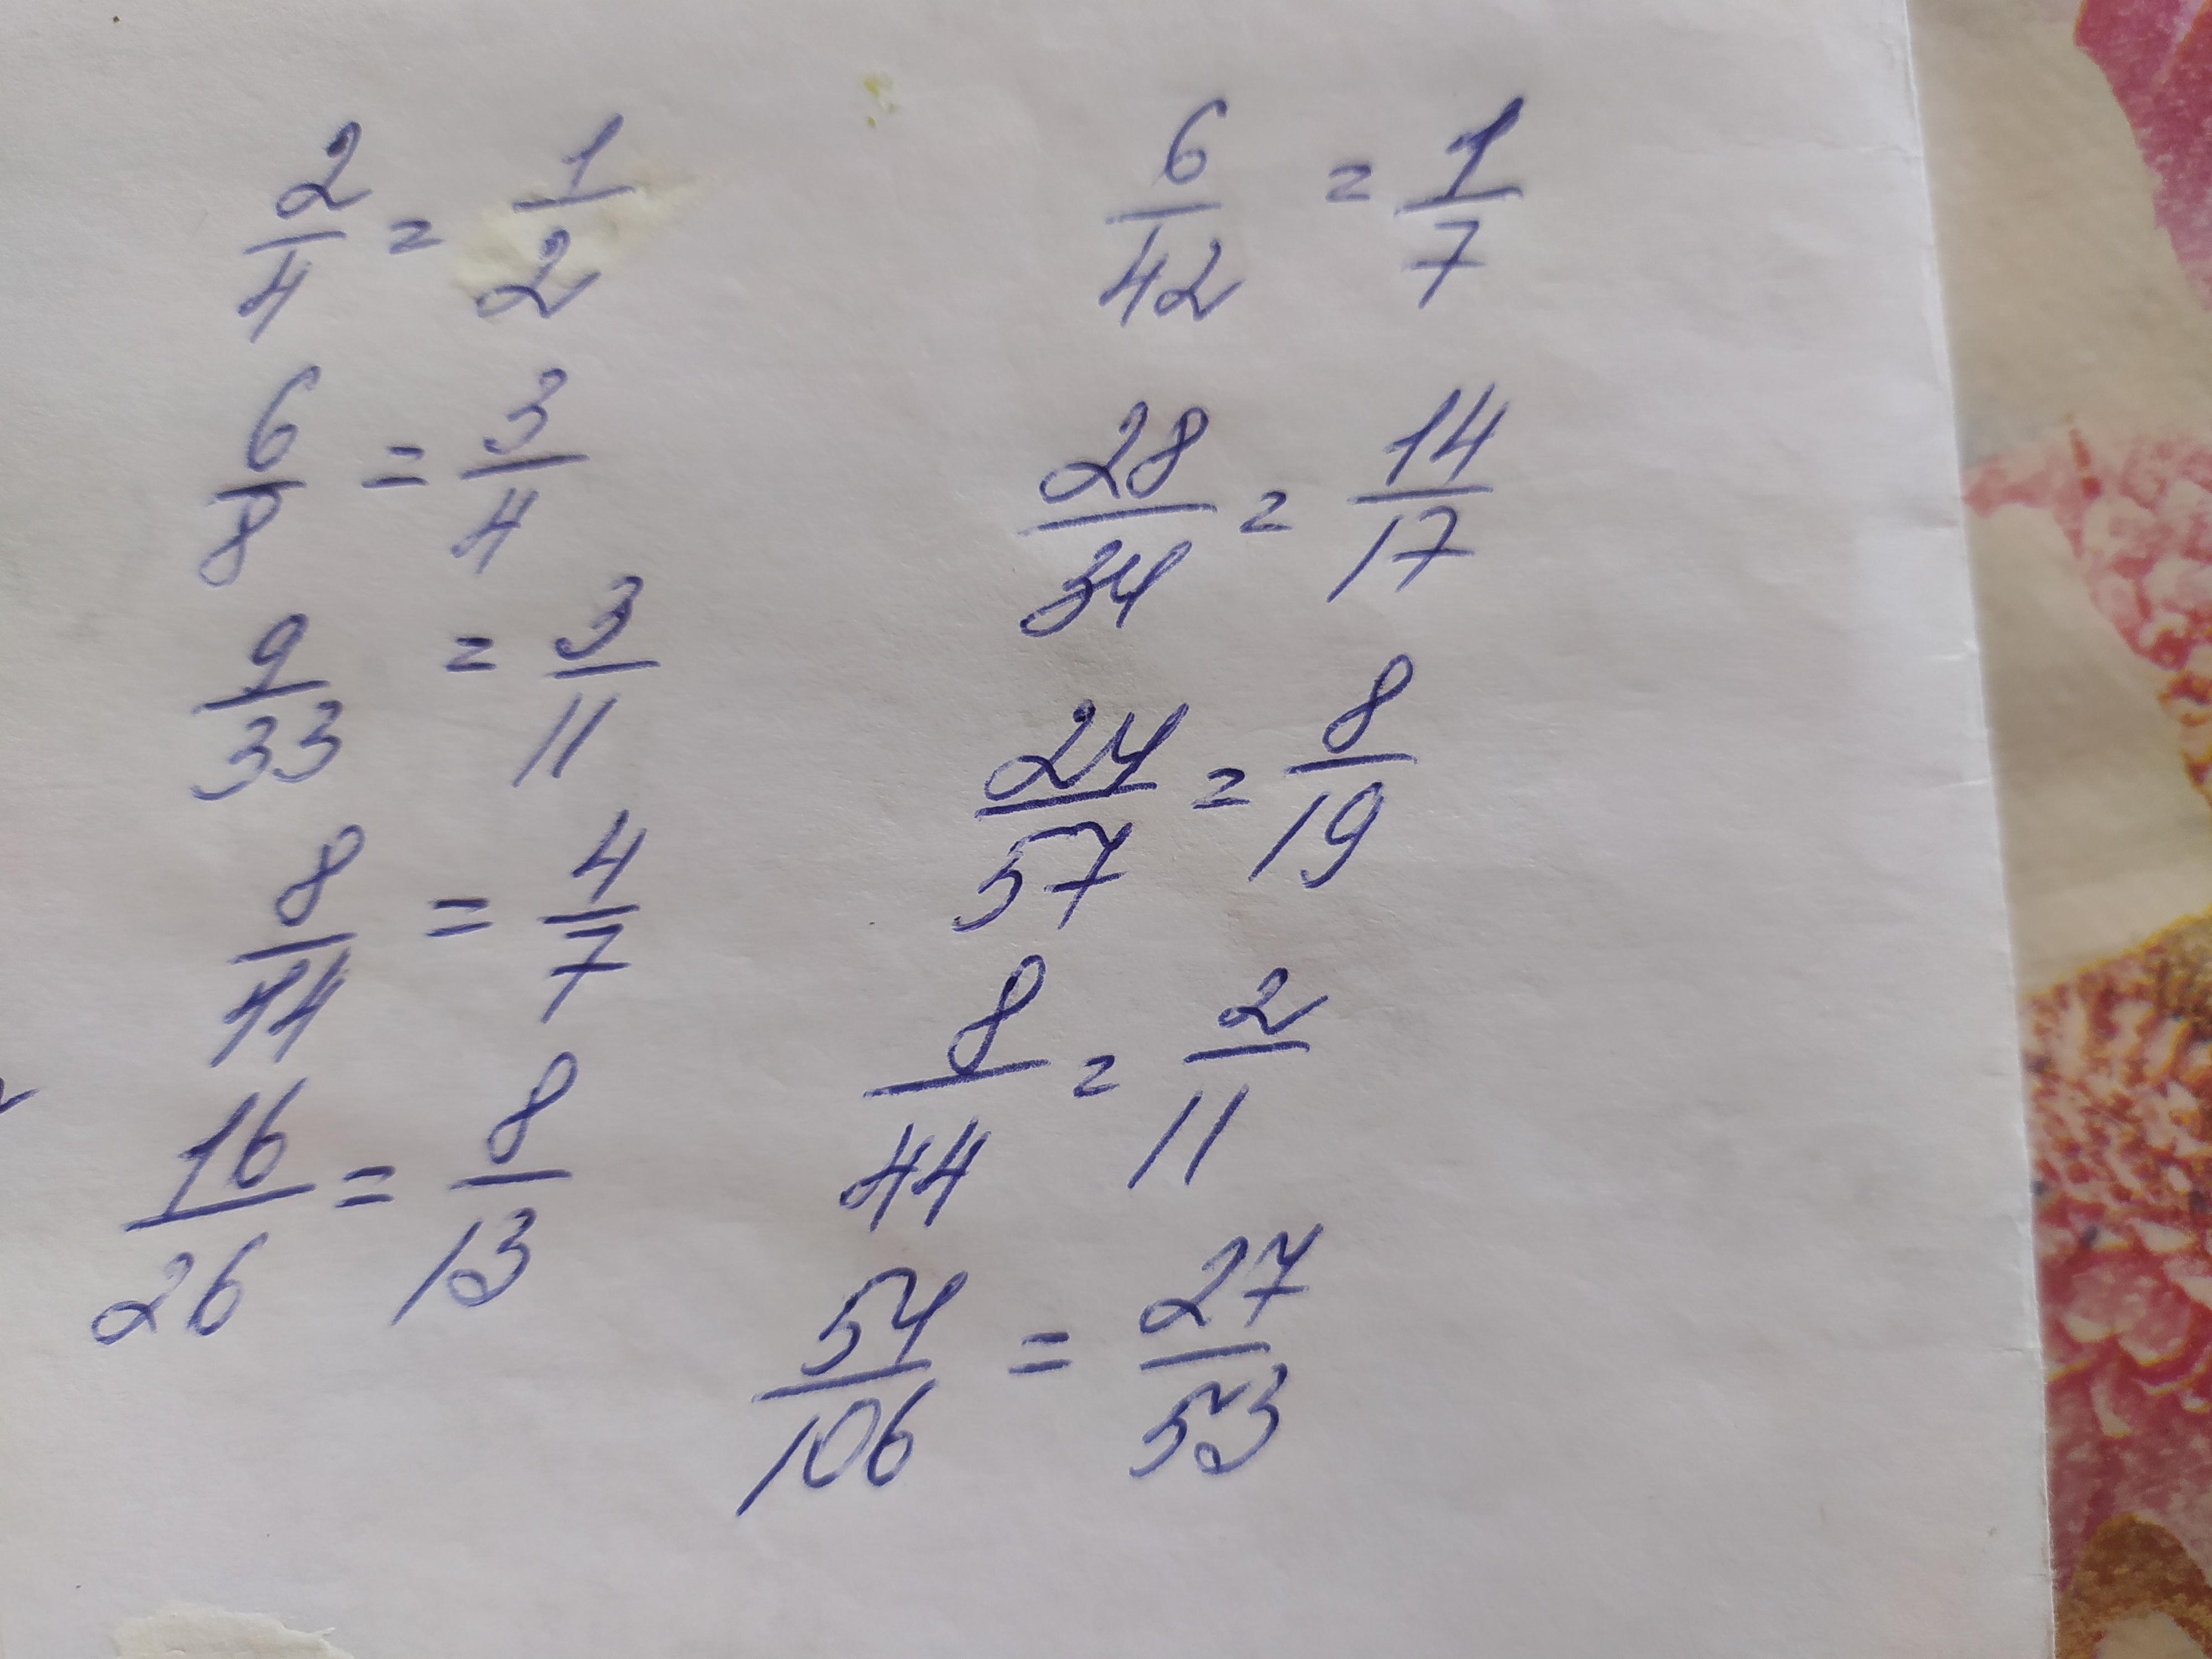 2/4 = 1/2
6/8 = 3/4
9/33 = 3/11
8/14 = 4/7
16/26 = 8/13
6/42 = 1/7
28/34 = 14/17
24/57 = 8/19
8/44 = 2/11
54/106 = 27/53